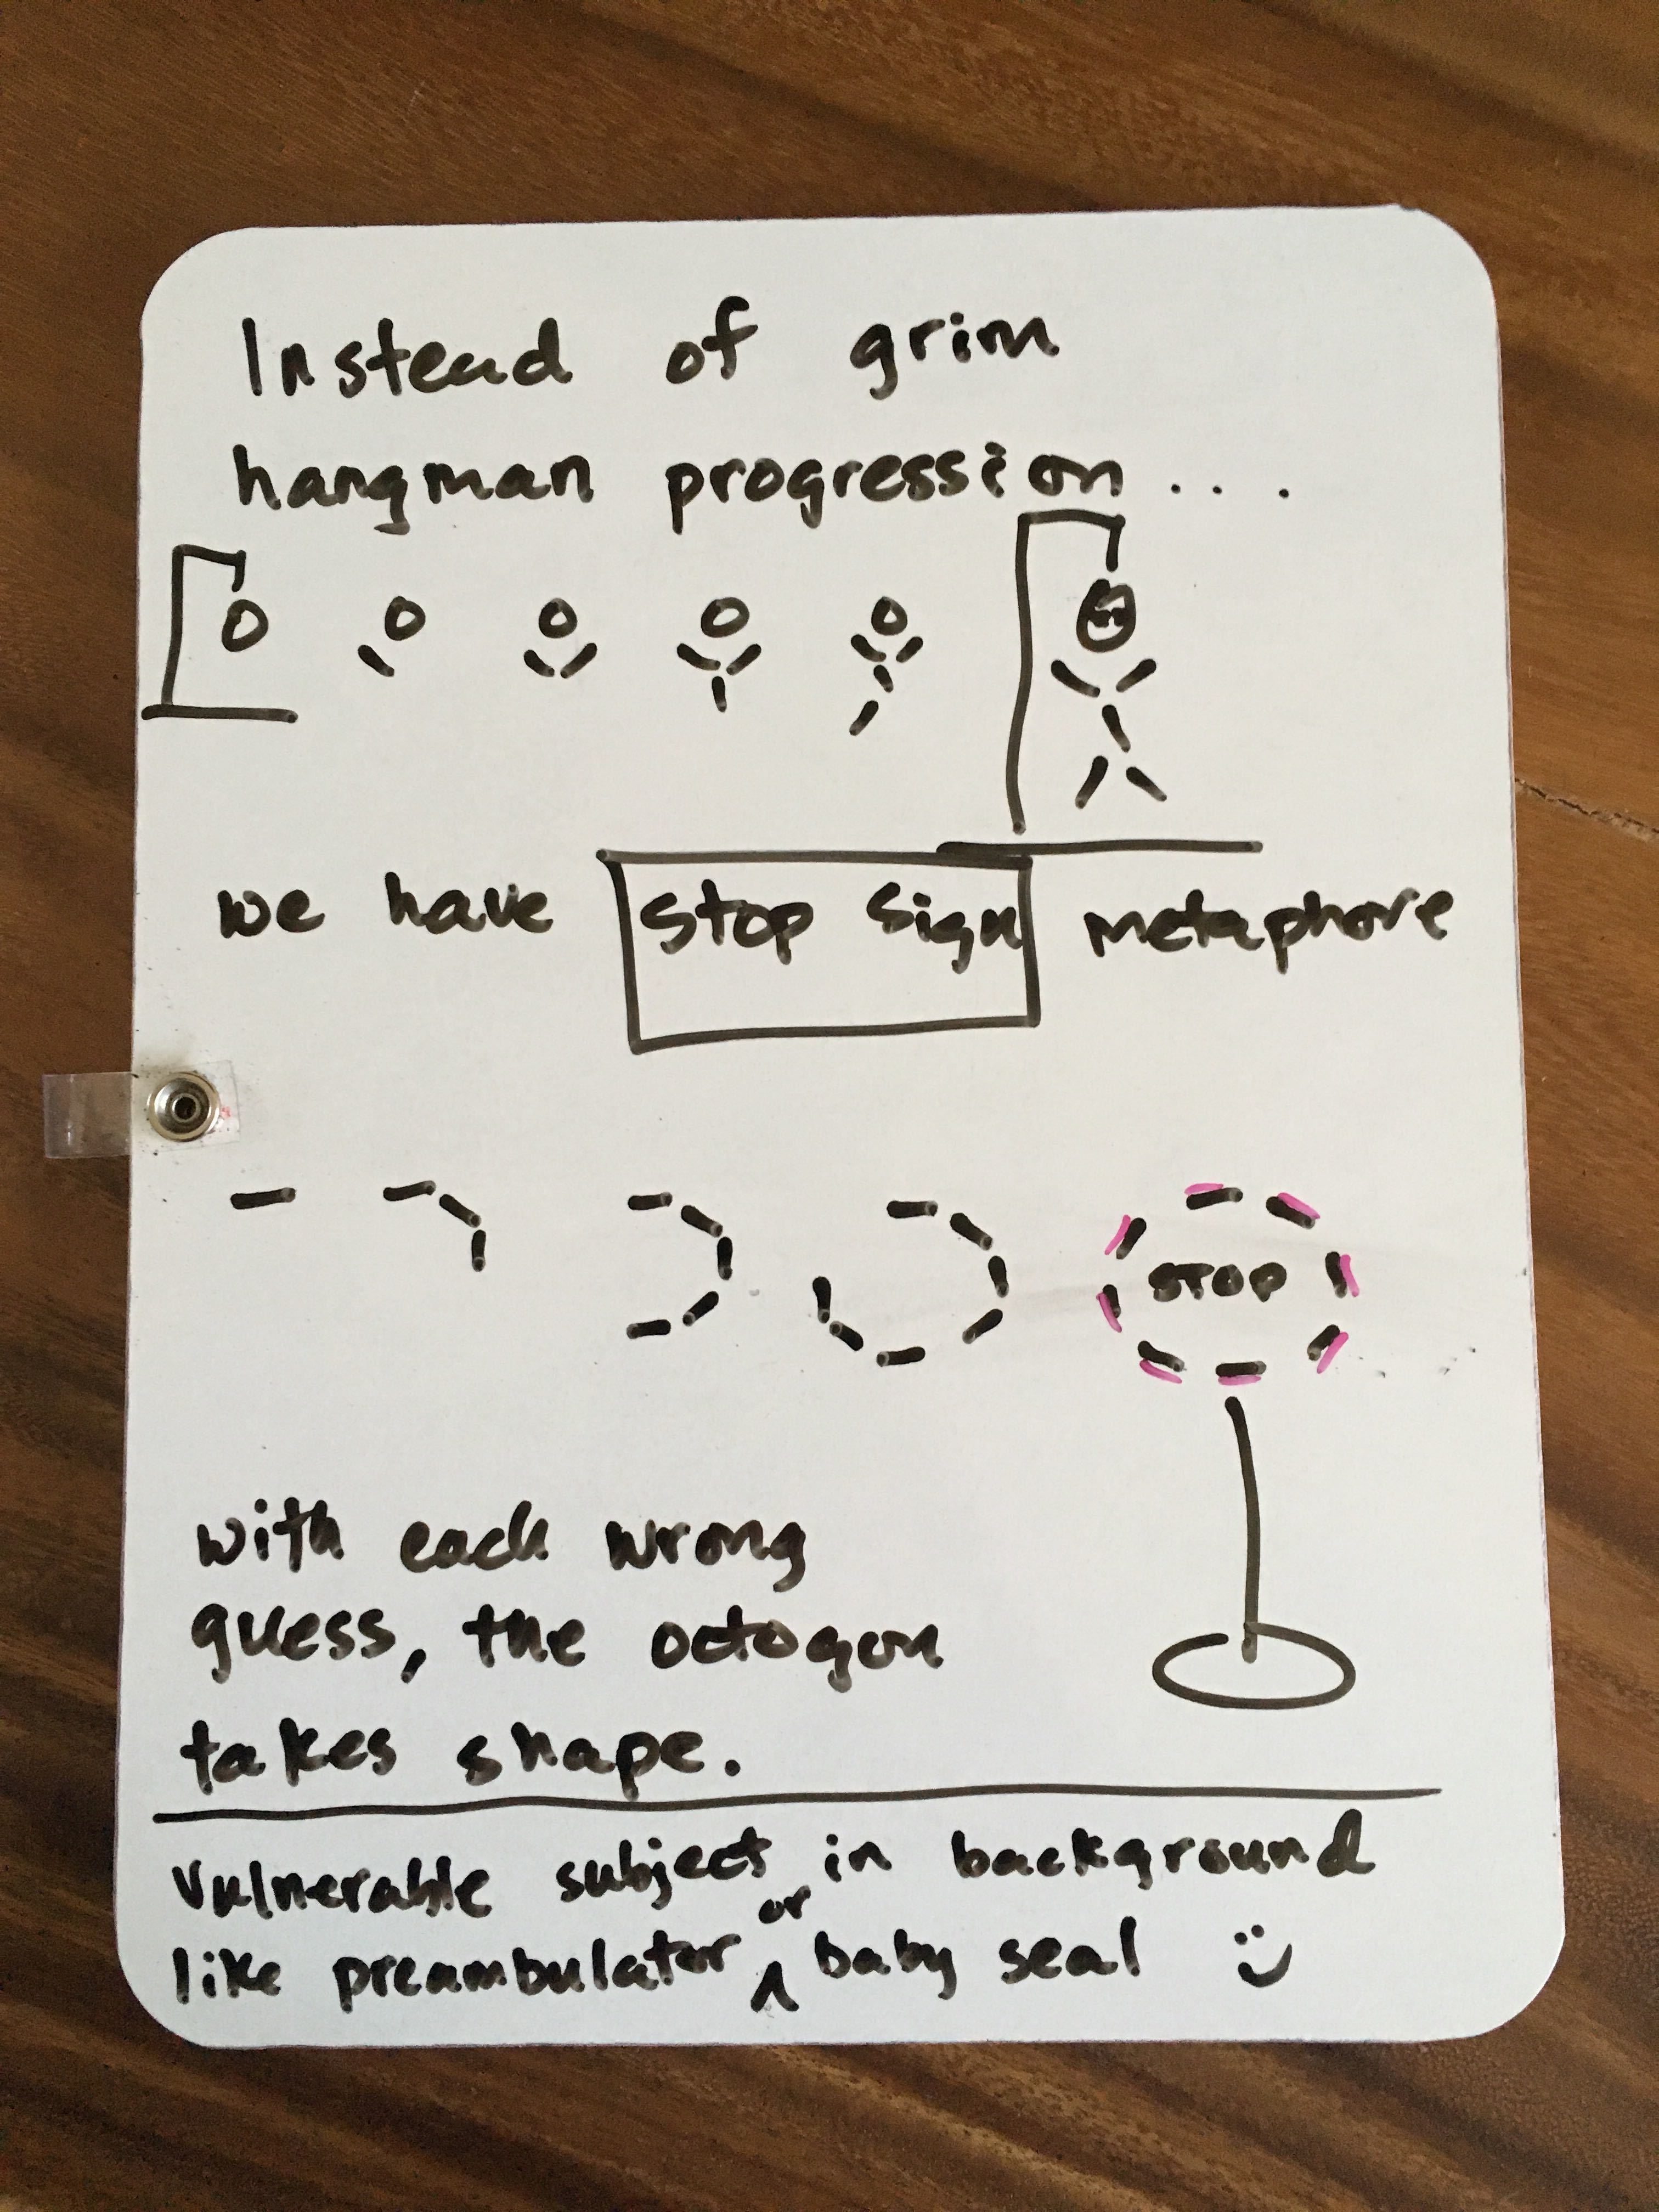 Instead of grim
hangman progression....
we have stop sign metaphore
STOP
with each wrong
guess, the octogon
takes shape.
Vulnerable subject in background
like preambulator or baby seal